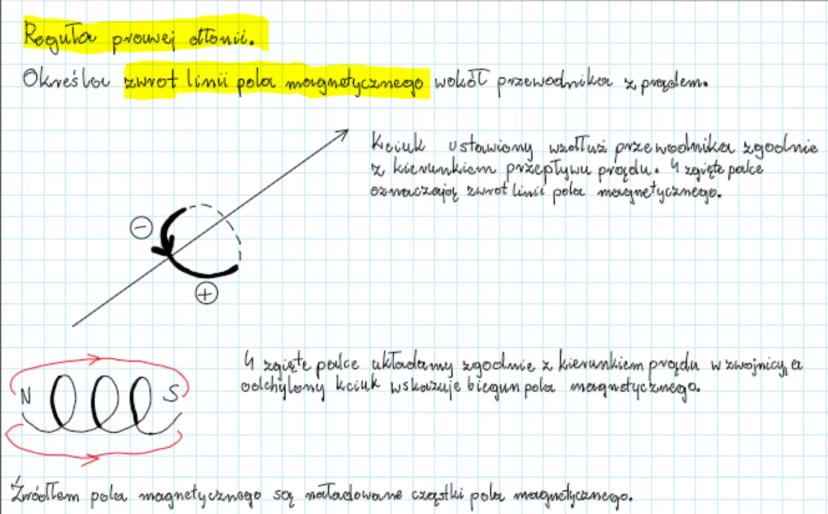 Reguła prawej dłonii.
Określa zwrot linii pola magnetycznego wokół przewodnika z prądem.
Kciuk ustawiony wzdłuż przewodnika zgodnie
z kierunkiem przepływu prądu. 4 zgięte palce
oznaczają zwrot linii pola magnetycznego.
-
+
4 zgięte palce układamy zgodnie z kierunkiem prądu w zwojnicy, a
odchylony kciuk wskazuje biegun pola magnetycznego.
N S
Źródłem pola magnetycznego są naładowane cząstki pola magnetycznego.